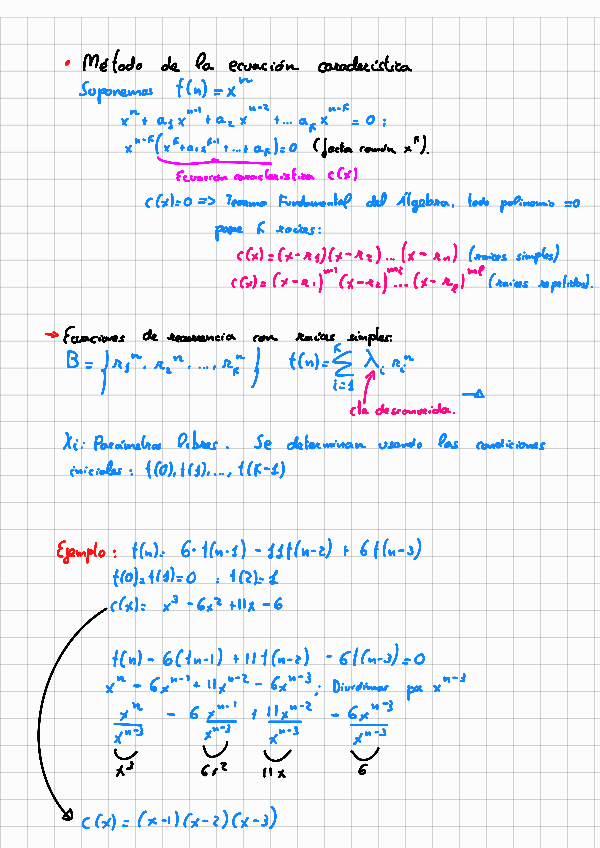 • Método de la ecuación característica
Suponemos f(n) = xⁿ
xⁿ + a₁xⁿ⁻¹ + a₂xⁿ⁻² + ... aₖxⁿ⁻ᵏ = 0 ;
xⁿ⁻ᵏ(xᵏ + a₁xᵏ⁻¹ + ... + aₖ) = 0 (factor común xᵏ).
Ecuación característica c(x)
c(x)=0 => Teorema Fundamental del Álgebra, todo polinomio =0
posee k raíces:
c(x) = (x-r₁)(x-r₂)...(x-rₙ) (raíces simples)
c(x) = (x-r₁)ᵐ¹ (x-r₂)ᵐ² ... (x-rₚ)ᵐᵖ (raíces repetidas).
→ Ecuaciones de recurrencia con raíces simples:
B = {r₁ⁿ, r₂ⁿ, ..., rₖⁿ} f(n) = Σᵢ₌₁ᴷ λᵢ rᵢⁿ
cte desconocida. →
λi: Parámetros libres. Se determinan usando las condiciones
iniciales: f(0), f(1), ..., f(k-1)
Ejemplo: f(n) = 6·f(n-1) - 11f(n-2) + 6f(n-3)
f(0)=f(1)=0 ; f(2)=1
c(x) = x³ - 6x² + 11x - 6
f(n) - 6(fn-1) + 11f(n-2) - 6f(n-3) = 0
xⁿ - 6xⁿ⁻¹ + 11xⁿ⁻² - 6xⁿ⁻³; Dividimos por xⁿ⁻³
xⁿ/xⁿ⁻³ - 6 xⁿ⁻¹/xⁿ⁻³ + 11xⁿ⁻²/xⁿ⁻³ - 6xⁿ⁻³/xⁿ⁻³
x³ 6x² 11x 6
c(x) = (x-1)(x-2)(x-3)